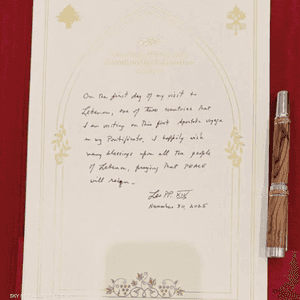 On the first day of my visit to
Lebanon, one of two countries that
I am visiting on this first Apostolic voyage
in my Pontificate, I happily wish
many blessings upon all the people
of Lebanon, praying that PEACE
will reign.
Leo PP. XIV
November 30, 2025
SKY